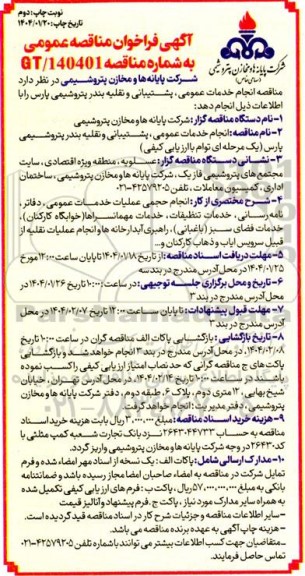 نوبت چاپ: دوم
تاریخ چاپ: ۱۴۰۴/۰۱/۲۰
آگهی فراخوان مناقصه عمومی
به شماره مناقصه GT/140401
شرکت پایانه ها و مخازن پتروشیمی
(سهامی خاص)
شرکت پایانه‌ها و مخازن پتروشیمی در نظر دارد
مناقصه انجام خدمات عمومی، پشتیبانی و نقلیه بندر پتروشیمی پارس را با
اطلاعات ذیل انجام دهد:
۱-نام دستگاه مناقصه گزار: شرکت پایانه‌ها و مخازن پتروشیمی
۲-نام مناقصه: انجام خدمات عمومی، پشتیبانی و نقلیه بندر پتروشیمی
پارس (یک مرحله ای توام با ارزیابی کیفی)
۳- نشانی دستگاه مناقصه گزار: عسلویه، منطقه ویژه اقتصادی، سایت
مجتمع های پتروشیمی فاز یک، شرکت پایانه ها و مخازن پتروشیمی، ساختمان
اداری، کمیسیون معاملات، تلفن ۴۲۵۷۹۲۰۵-۰۲۱
۴- شرح مختصری از کار: انجام حجمی عملیات خدمات عمومی، دفاتر،
نامه رسانی، خدمات تنظیفات، خدمات مهمانسراها (خوابگاه کارکنان)،
خدمات فضای سبز (باغبانی)، راهبری آبدارخانه ها و انجام عملیات نقلیه از
قبیل سرویس ایاب و ذهاب کارکنان و...
۵- مهلت دریافت اسناد مناقصه: از تاریخ ۱۴۰۴/۰۱/۱۸ تا پایان ساعت ۱۲:۰۰ مورخ
۱۴۰۴/۰۱/۲۵ در محل آدرس مندرج در بند سه
۶- تاریخ و محل برگزاری جلسه توجیهی: در ساعت ۱۰:۰۰ تاریخ ۱۴۰۴/۰۱/۲۶ در
محل آدرس مندرج در بند ۳
۷- مهلت قبول پیشنهادات: تا پایان ساعت ۱۲:۰۰ تاریخ ۱۴۰۴/۰۲/۰۷ در محل
آدرس مندرج در بند ۳
۸- تاریخ بازگشایی: بازگشایی پاکات الف مناقصه گران در ساعت ۱۰:۰۰ تاریخ
۱۴۰۴/۰۲/۰۸، در محل آدرس مندرج در بند ۳ انجام خواهد شد و بازگشایی
پاکت های ج مناقصه گرانی که حد نصاب امتیاز ارزیابی کیفی را کسب نموده
باشند در ساعت ۱۰:۰۰ تاریخ ۱۴۰۴/۰۲/۱۴ در محل آدرس تهران، خیابان
شیخ بهایی، ۱۲ متری دوم، پلاک ۶، طبقه دوم، دفتر شرکت پایانه ها و مخازن
پتروشیمی، دفتر مدیریت انجام خواهد گرفت
۹- هزینه خرید اسناد مناقصه: مبلغ ۳,۰۰۰,۰۰۰ ریال بابت هزینه خرید اسناد
مناقصه به حساب ۲۶۴۳۰۴۴۷۳۳ نزد بانک تجارت شعبه کمپ مثلثی با
کد ۲۶۴۳۰ در وجه شرکت پایانه ها و مخازن پتروشیمی واریز گردد.
۱۰- مدارک ارسالی شامل: پاکات الف: یک نسخه از اسناد مهر امضاء شده و فرم
تمایل شرکت در مناقصه به امضاء صاحبان امضا مجاز رسیده باشد و ضمانتنامه
بانکی به مبلغ ریال، پاکت ب: فرم های ارزیابی کیفی تکمیل شده
به همراه سایر مدارک مورد نیاز، پاکت ج: فرم پیشنهاد و آنالیز قیمت
-سایر اطلاعات مناقصه و جزئیات شرح کار در اسناد مناقصه قید گردیده است.
- هزینه چاپ آگهی به عهده برنده مناقصه می باشد.
-متقاضیان جهت کسب اطلاعات بیشتر می توانند با شماره تلفن ۴۲۵۷۹۲۰۵-۰۲۱
تماس حاصل فرمایند.